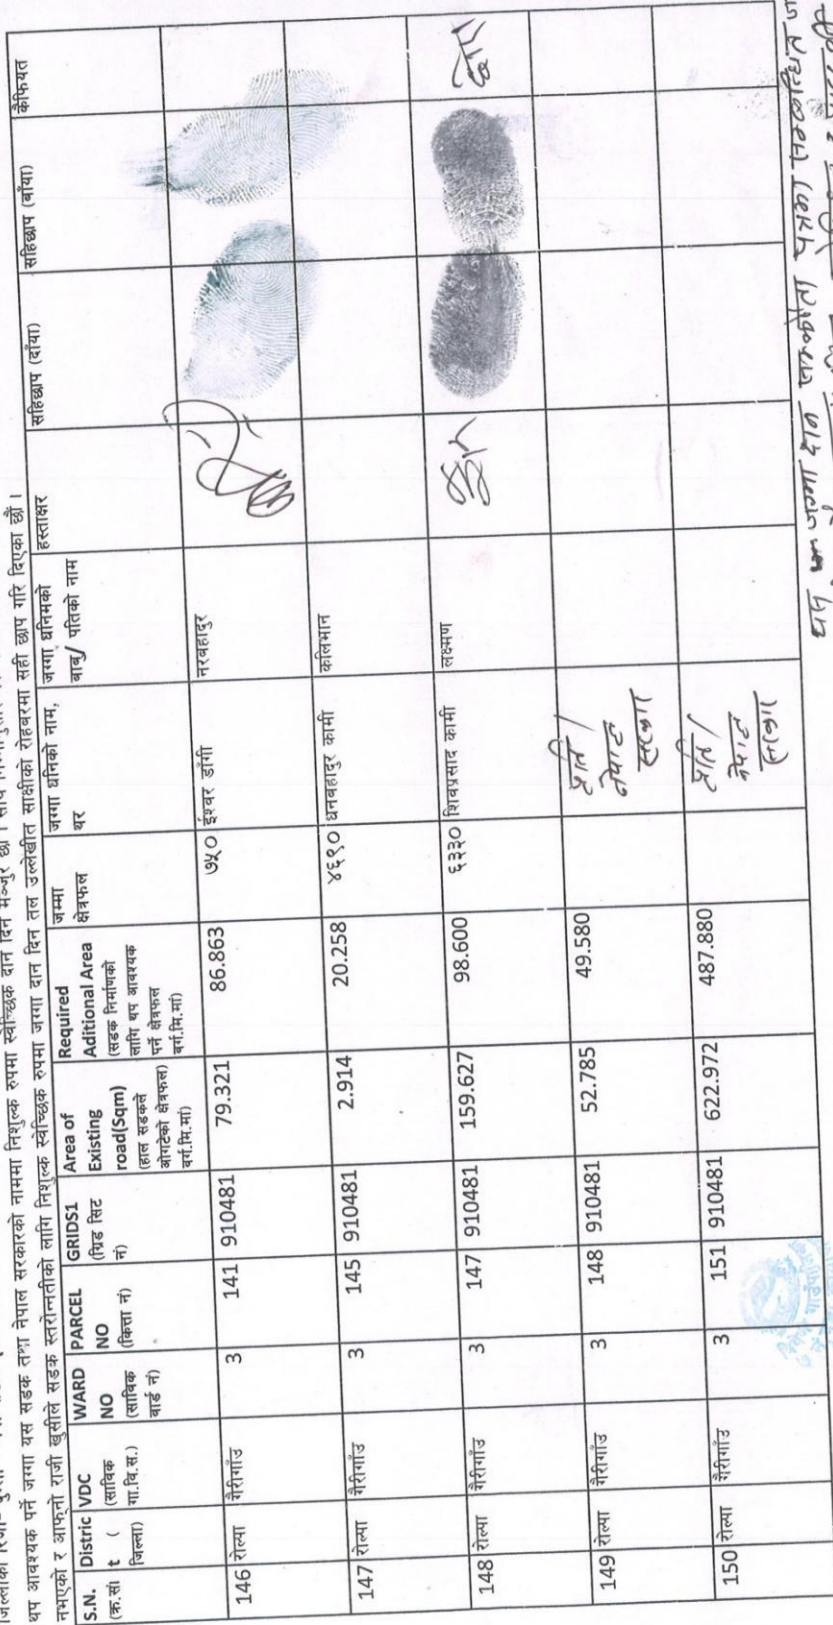 थप आवश्यक पर्ने जग्गा यस सडक तथा नेपाल सरकारको नाममा निशुल्क रुपमा स्वेच्छिक दान दिन मञ्जुर छौं ।
नभएको र आफ्नो राजी खुसीले सडक स्तरोन्नतीको लागि निशुल्क स्वेच्छिक रुपमा जग्गा दान दिन तल उल्लेखीत साक्षीको रोहबरमा सही छाप गरि दिएका छौं ।
S.N. (क्र.सं) District (जिल्ला) VDC (साविक गा.वि.स.) WARD NO (साविक वार्ड नं) PARCEL NO (कित्ता नं) GRIDS1 (ग्रिड सिट नं) Area of Existing road(Sqm) (हाल सडकले ओगटेको क्षेत्रफल) वर्ग.मि.मां) Required Aditional Area (सडक निर्माणको लागि थप आवश्यक पर्ने क्षेत्रफल वर्ग.मि.मां) जम्मा क्षेत्रफल जग्गा धनिको नाम, थर जग्गा धनिमको बाबु/ पतिको नाम हस्ताक्षर सहिछाप (दाँया) सहिछाप (बाँया) कैफियत
146 रोल्पा गैरीगाँउ 3 141 910481 79.321 86.863 ७५० ईश्वर डाँगी नरबहादुर
147 रोल्पा गैरीगाँउ 3 145 910481 2.914 20.258 ४६९० धनबहादुर कामी कलिमान
148 रोल्पा गैरीगाँउ 3 147 910481 159.627 98.600 ६३३० शिवप्रसाद कामी लक्ष्मण
149 रोल्पा गैरीगाँउ 3 148 910481 52.785 49.580 नेपाल सरकार
150 रोल्पा गैरीगाँउ 3 151 910481 622.972 487.880 नेपाल सरकार